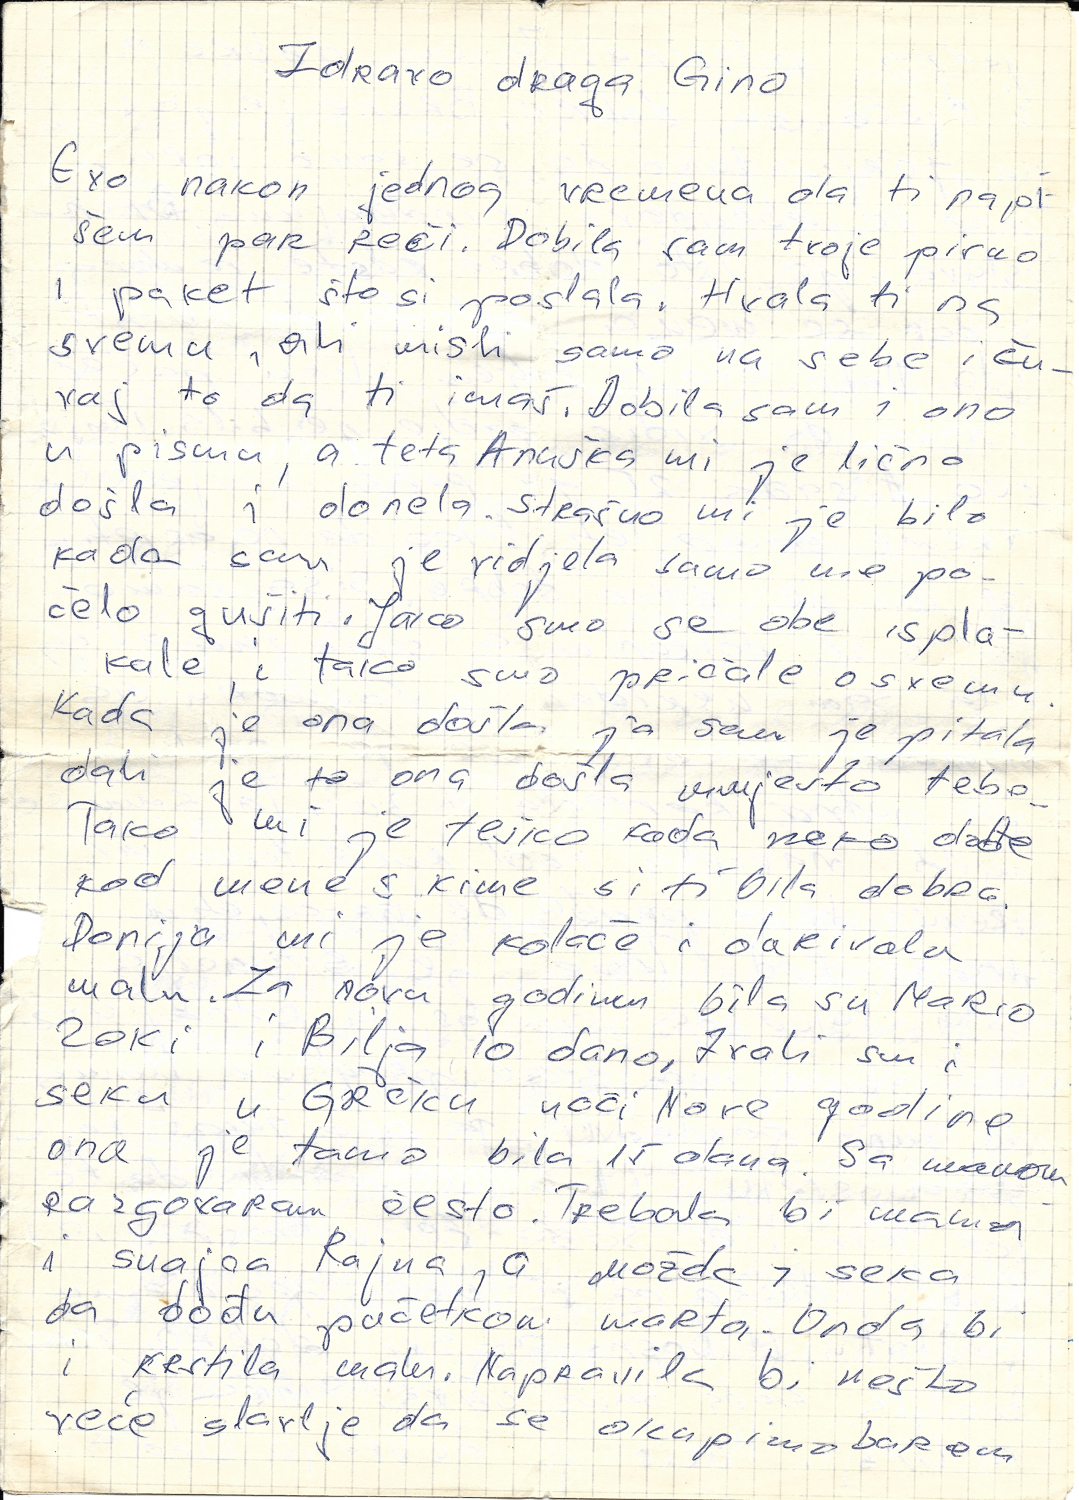 Zdravo draga Gino
Evo nakon jednog vremena da ti napi-
šem par reči. Dobila sam tvoje pismo
i paket što si poslala. Hvala ti na
svemu, ali misli samo na sebe i ču-
vaj to da ti imaš. Dobila sam i ono
u pismu, a teta Anuška mi je lično
došla i donela. Strašno mi je bilo
kada sam je vidjela samo me po-
čelo gušiti. Jako smo se obe ispla-
kale, i tako smo pričale o svemu.
Kada je ona došla ja sam je pitala
dali je to ona došla umjesto tebe.
Tako mi je teško kada neko dođe
kod mene s kime si ti bila dobra.
Donija mi je kolače i darivala
malu. Za novu godinu bila su Mario
Zoki i Bilja 10 dana. Zvali su i
seku u Grčku uoči Nove godine
ona je tamo bila 15 dana. Sa mamom
razgovaram često. Trebala bi mama
i snajca Rajna, a možda i seka
da dođu početkom marta. Onda bi
i krstila malu. Napravila bi nešto
veće slavlje da se okupimo barem